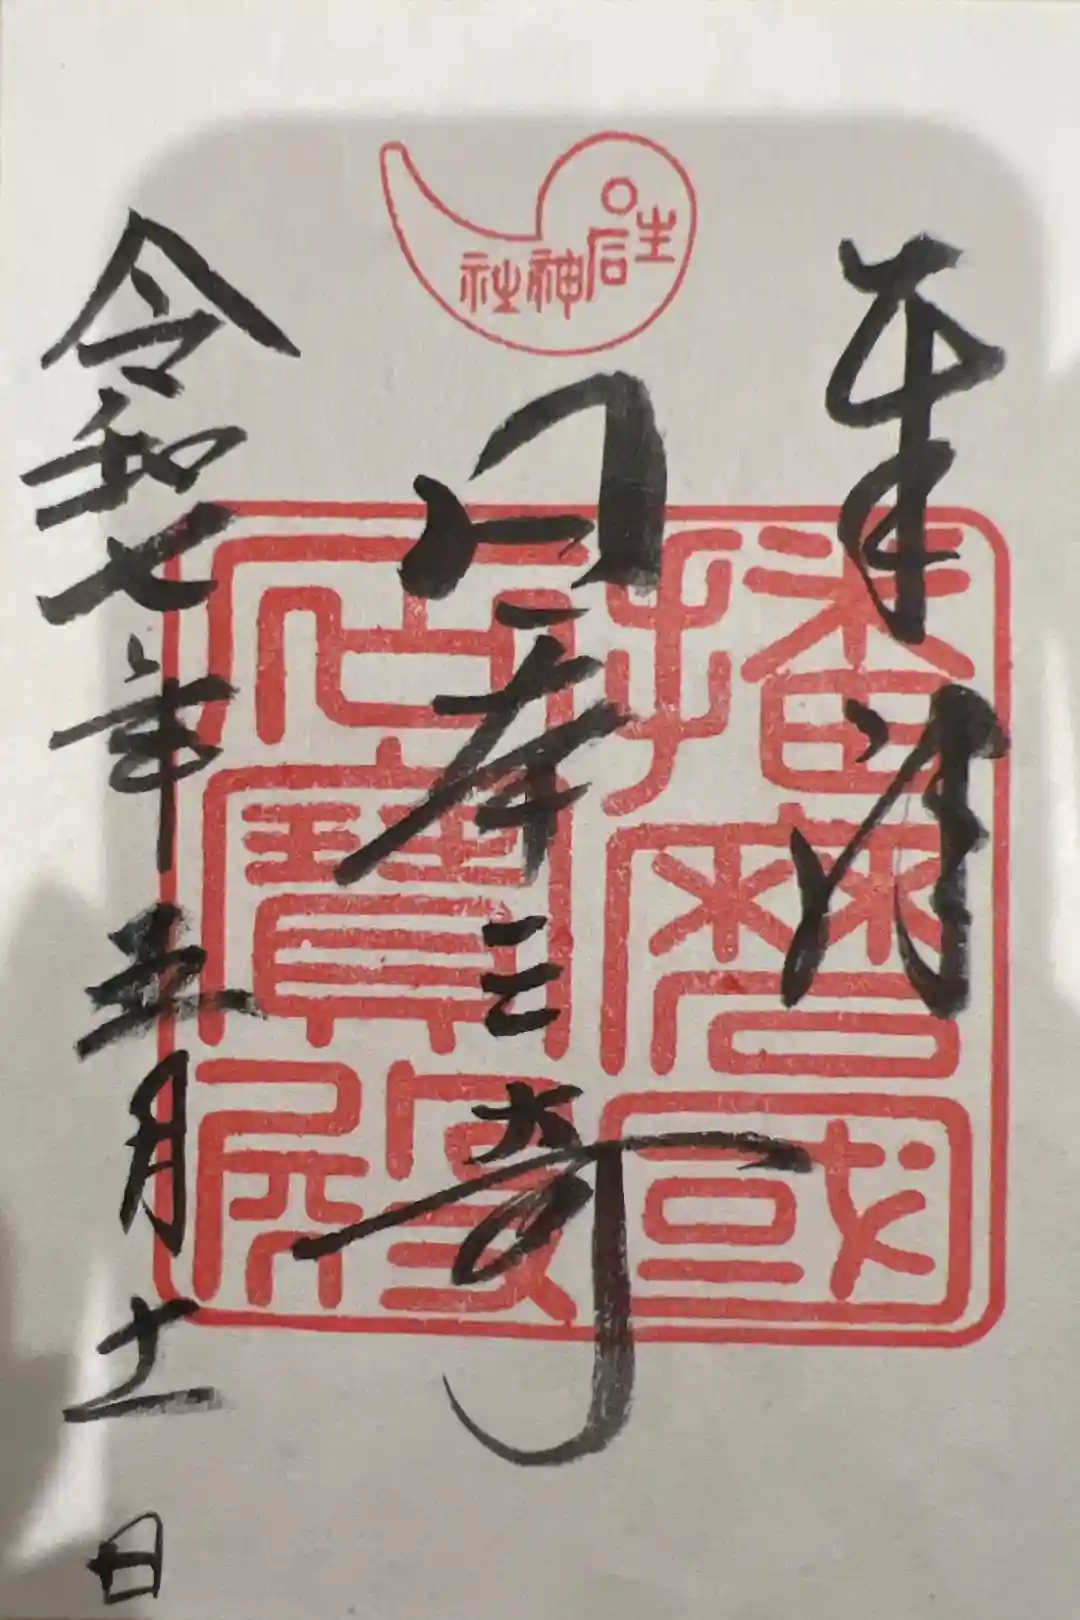 生石神社
奉拝
日本三奇
播磨國
石寶殿
令和七年五月十一日